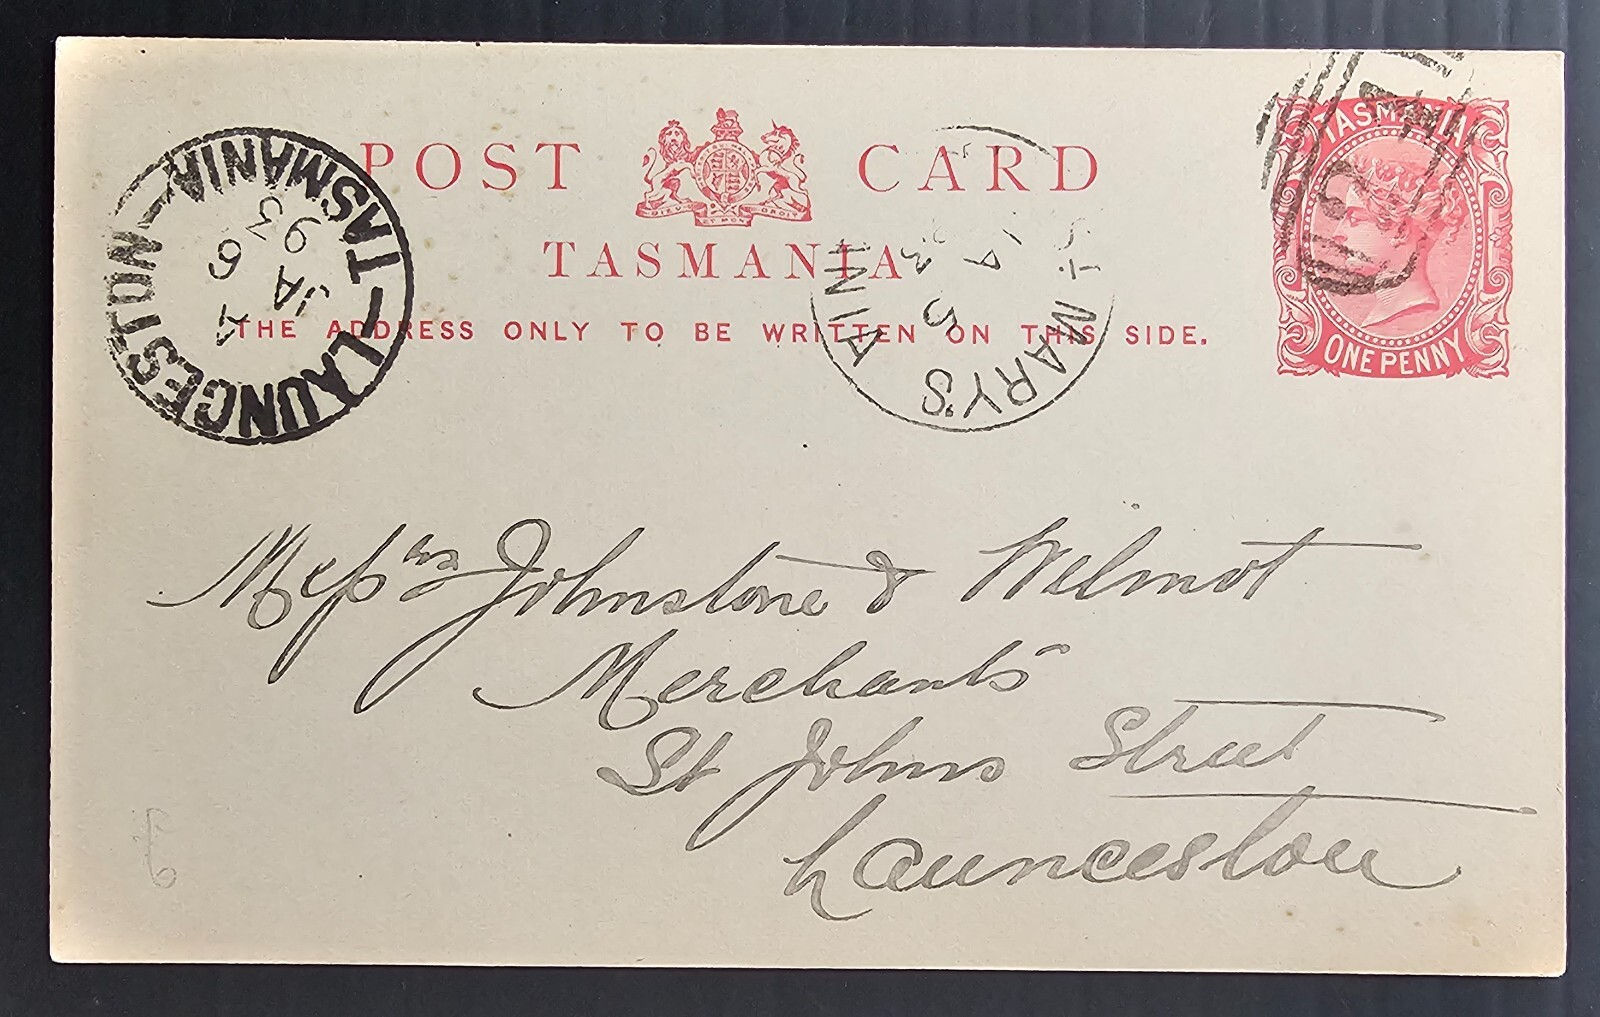 POST CARD
DIEU ET MON DROIT
TASMANIA
THE ADDRESS ONLY TO BE WRITTEN ON THIS SIDE.
TASMANIA
ONE PENNY
LAUNCESTON — TASMANIA —
A
JA 6
93
ST MARY'S
5
TASMANIA
Messrs Johnstone & Wilmot
Merchants
St Johns Street
Launceston